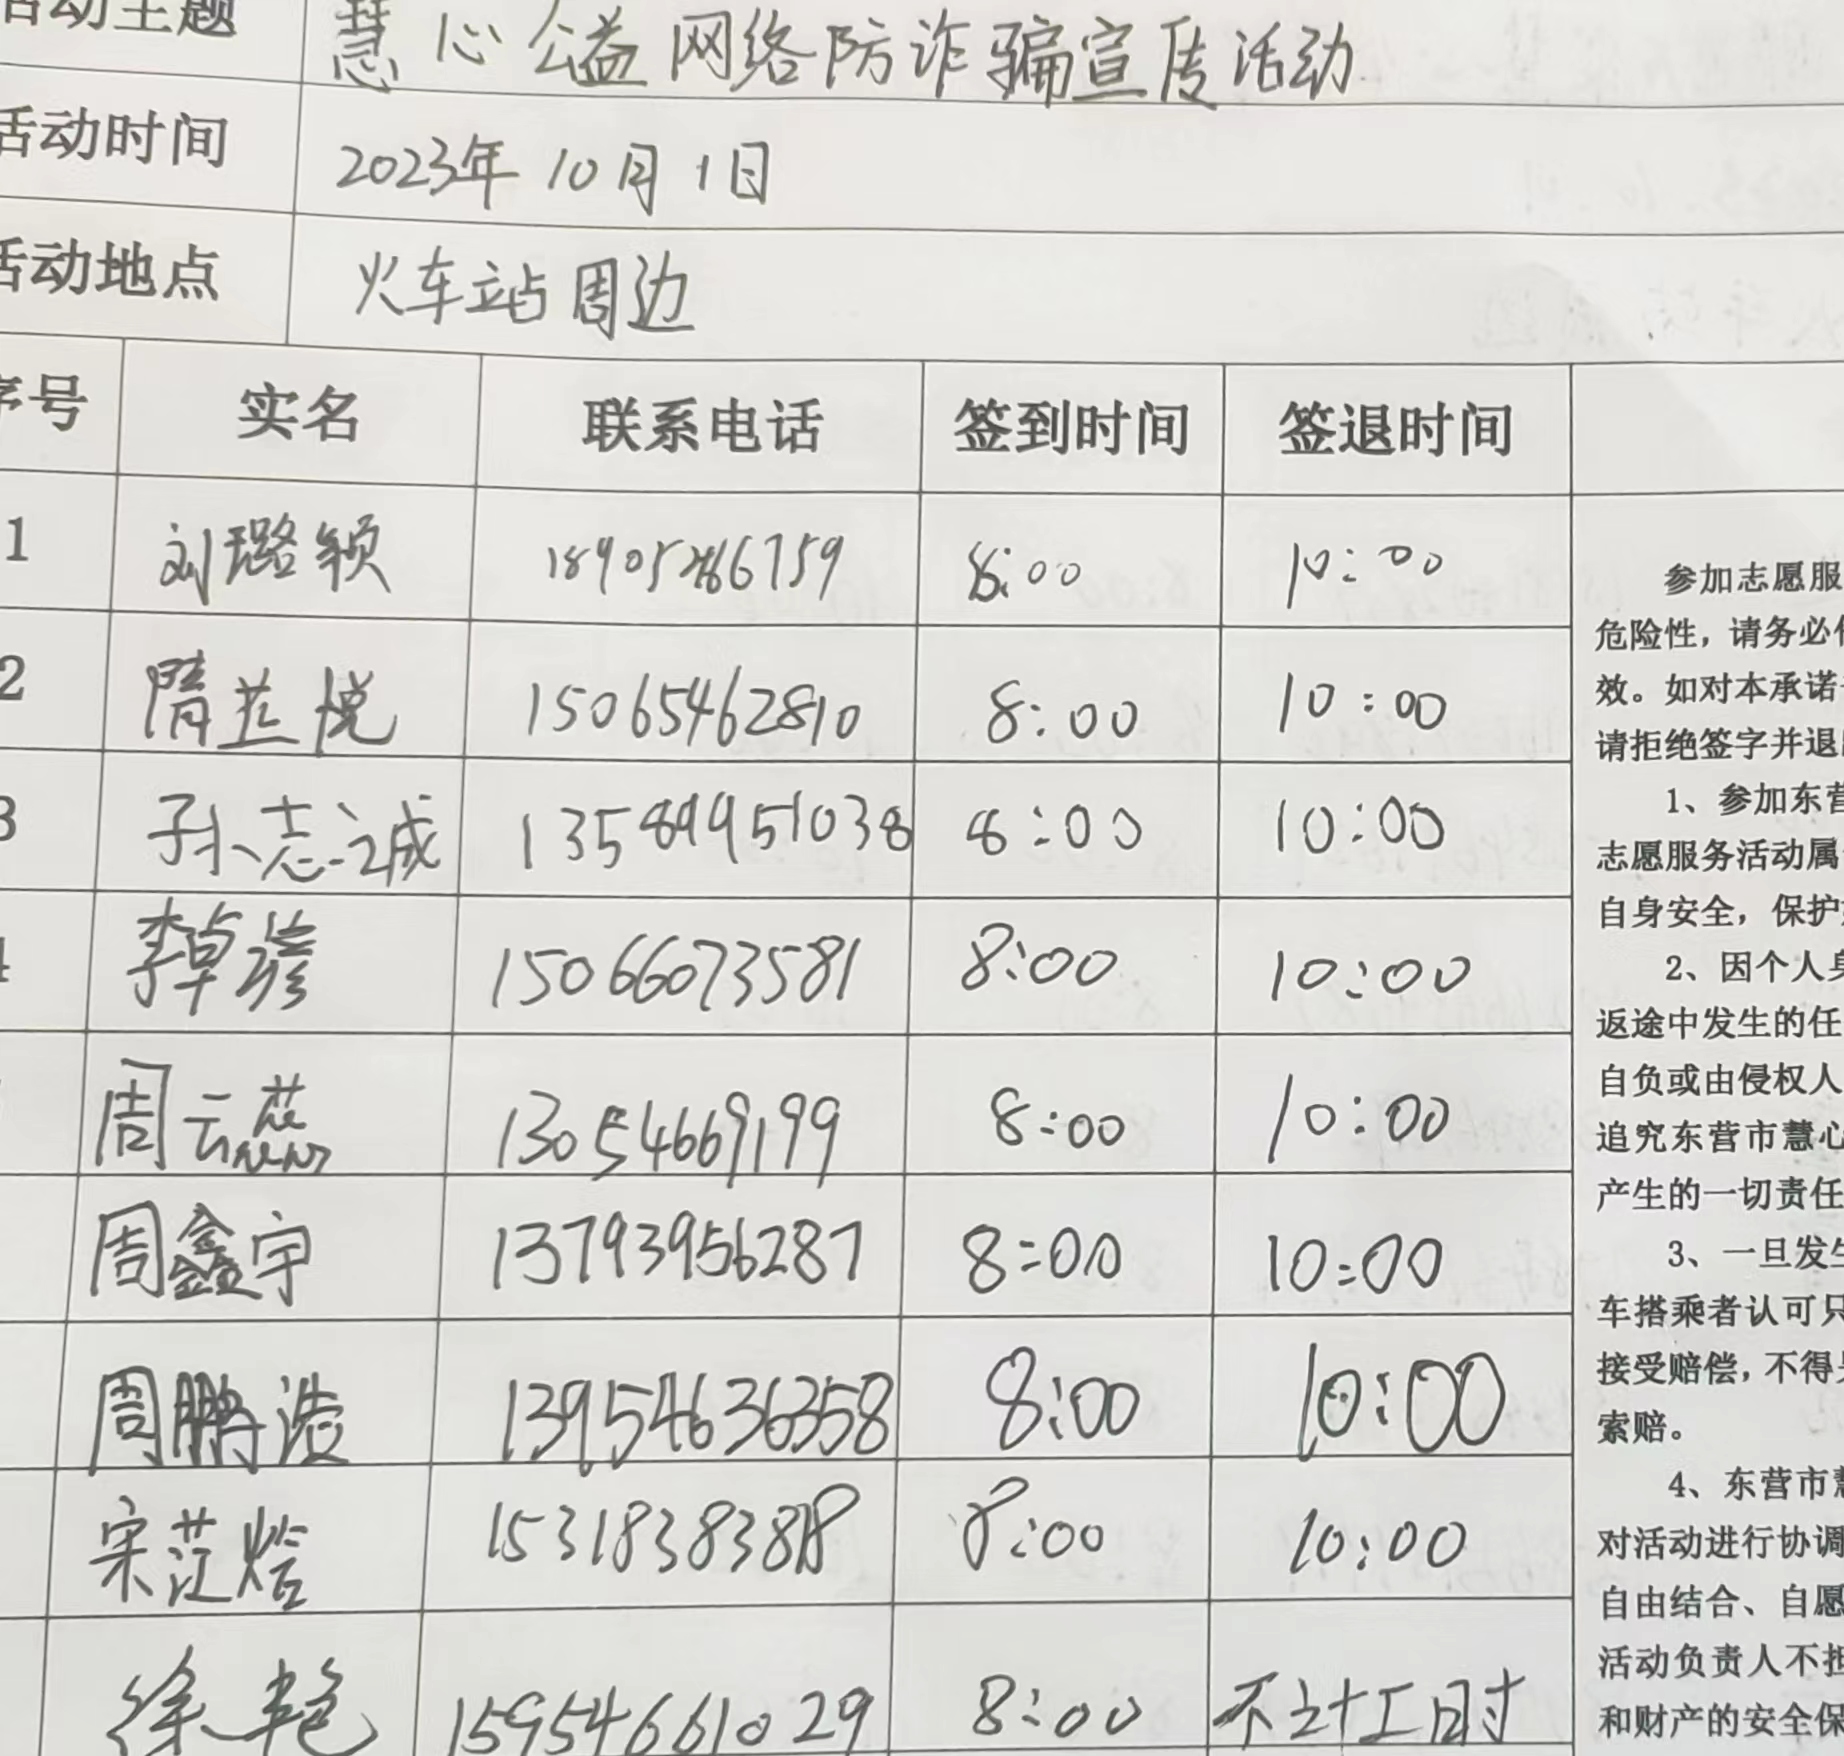 活动主题 慧心公益网络防诈骗宣传活动
活动时间 2023年10月1日
活动地点 火车站周边
序号 实名 联系电话 签到时间 签退时间
1 刘璐颖 8:00 10:00
2 隋芷悦 15065462810 8:00 10:00
3 孙志诚 13589951038 8:00 10:00
4 李卓 15066073581 8:00 10:00
周云蕊 13054669199 8:00 10:00
周鑫宇 13793956287 8:00 10:00
周鹏浩 13954636358 8:00 10:00
宋 8:00 10:00
徐艳 15954661029 8:00 不计工时
参加志愿服
危险性，请务必
效。如对本承诺
请拒绝签字并退
1、参加东营
志愿服务活动属
自身安全，保护
2、因个人身
返途中发生的任
自负或由侵权人
追究东营市慧心
产生的一切责任
3、一旦发生
车搭乘者认可只
接受赔偿，不得
索赔。
4、东营市慧
对活动进行协调
自由结合、自愿
活动负责人不担
和财产的安全保